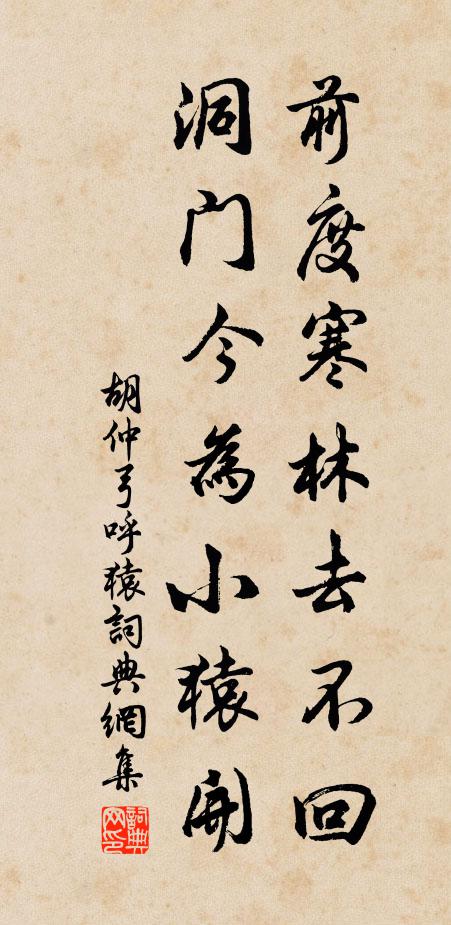 前度寒林去不回
洞门今為小猿開
胡仲弓呼猿詞典網集
詞典网印